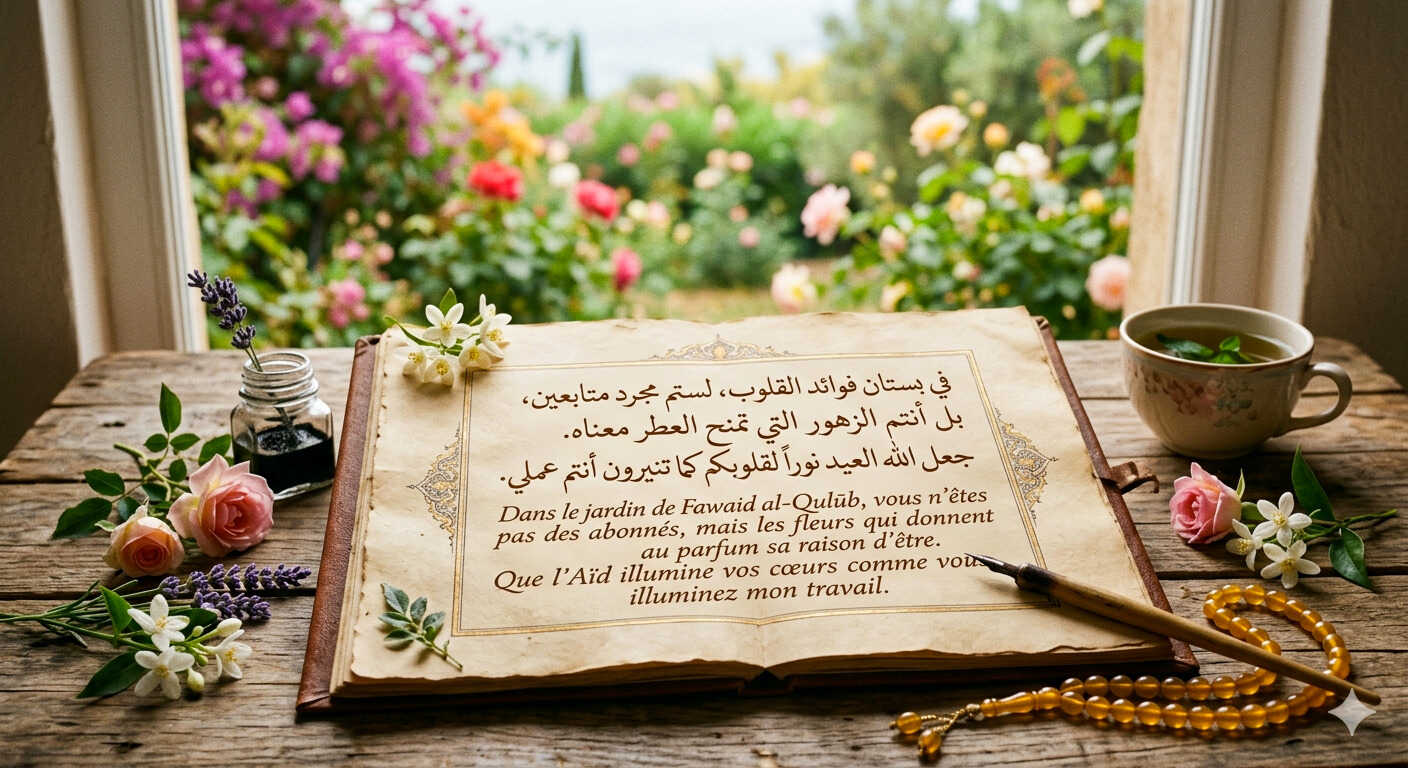 في بستان فوائد القلوب، لستم مجرد متابعين،
بل أنتم الزهور التي تمنح العطر معناه.
جعل الله العيد نوراً لقلوبكم كما تنيرون أنتم عملي.
Dans le jardin de Fawaid al-Qulūb, vous n'êtes
pas des abonnés, mais les fleurs qui donnent
au parfum sa raison d'être.
Que l'Aïd illumine vos cœurs comme vous
illuminez mon travail.